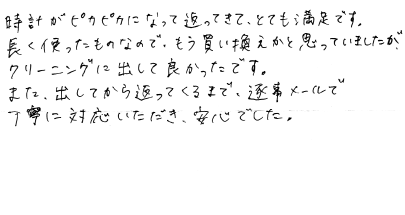 時計がピカピカになって返ってきて、とても満足です。
長く使ったものなので、もう買い換えかと思っていましたが
クリーニングに出して良かったです。
また、出してから返ってくるまで、逐事メールで
丁寧に対応いただき、安心でした。